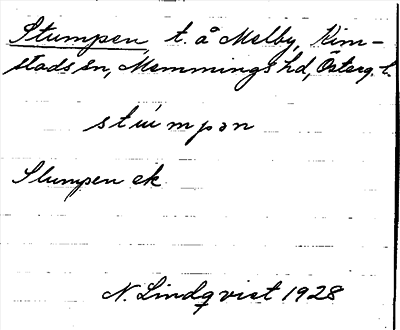 Stumpen, t. å Melby, Kim-
stads sn, Memmings hd, Österg. l.
stumpən
Slumpen ek
N. Lindqvist 1928